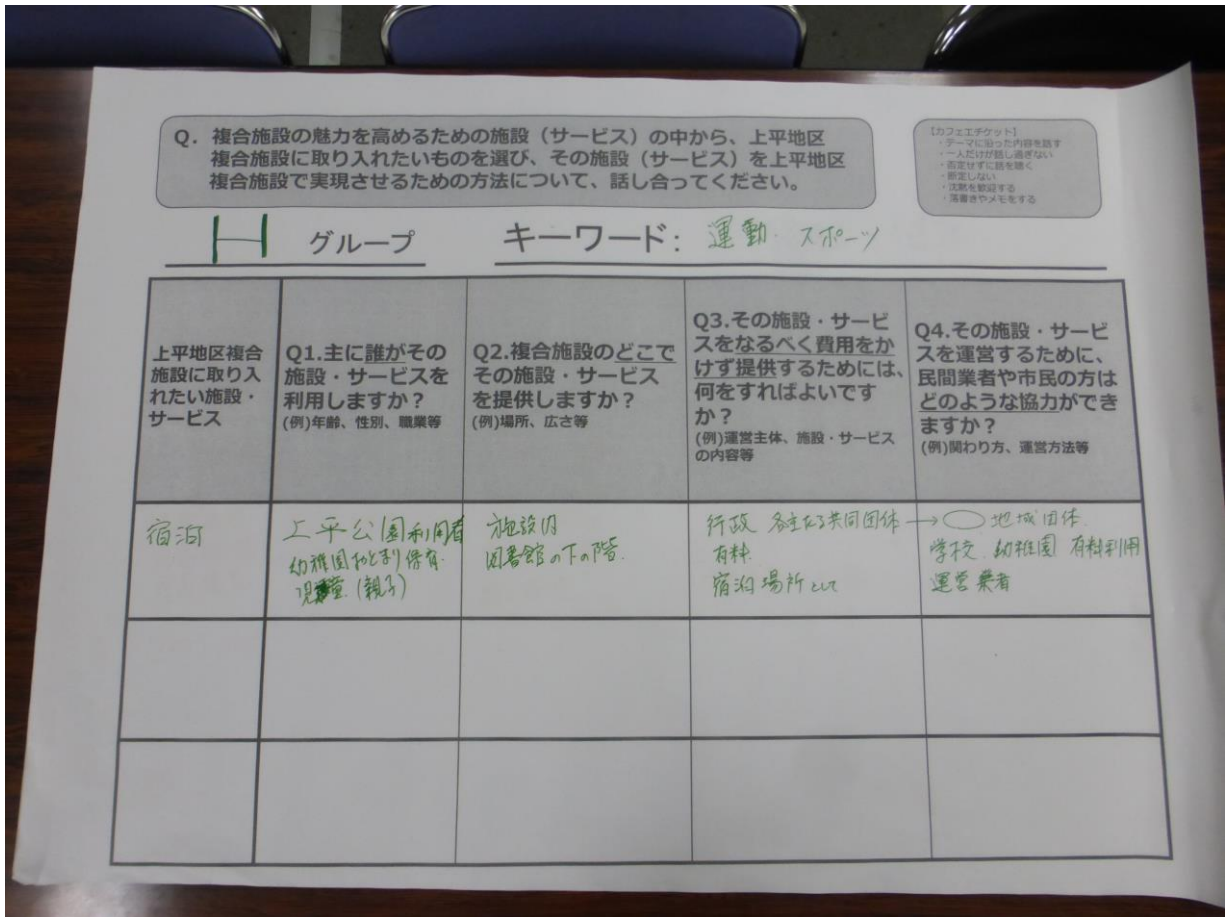 Q. 複合施設の魅力を高めるための施設(サービス)の中から、上平地区
複合施設に取り入れたいものを選び、その施設(サービス)を上平地区
複合施設で実現させるための方法について、話し合ってください。
【カフェエチケット】
・テーマに沿った内容を話す
・一人だけが話し過ぎない
・否定せずに話を聴く
・断定しない
・沈黙を歓迎する
・落書きやメモをする
H グループ
キーワード: 運動・スポーツ
上平地区複合
施設に取り入
れたい施設・
サービス
Q1.主に誰がその
施設・サービスを
利用しますか?
(例)年齢、性別、職業等
Q2.複合施設のどこで
その施設・サービス
を提供しますか?
(例)場所、広さ等
Q3.その施設・サービ
スをなるべく費用をか
けず提供するためには、
何をすればよいです
か?
(例)運営主体、施設・サービス
の内容等
Q4.その施設・サービ
スを運営するために、
民間業者や市民の方は
どのような協力ができ
ますか?
(例)関わり方、運営方法等
宿泊
上平公園利用者
幼稚園おとまり保育.
児童.(親子)
施設内
図書館の下の階.
行政 各主たる共同団体 →
有料.
宿泊場所として
地域団体.
学校.幼稚園 有料利用
運営業者